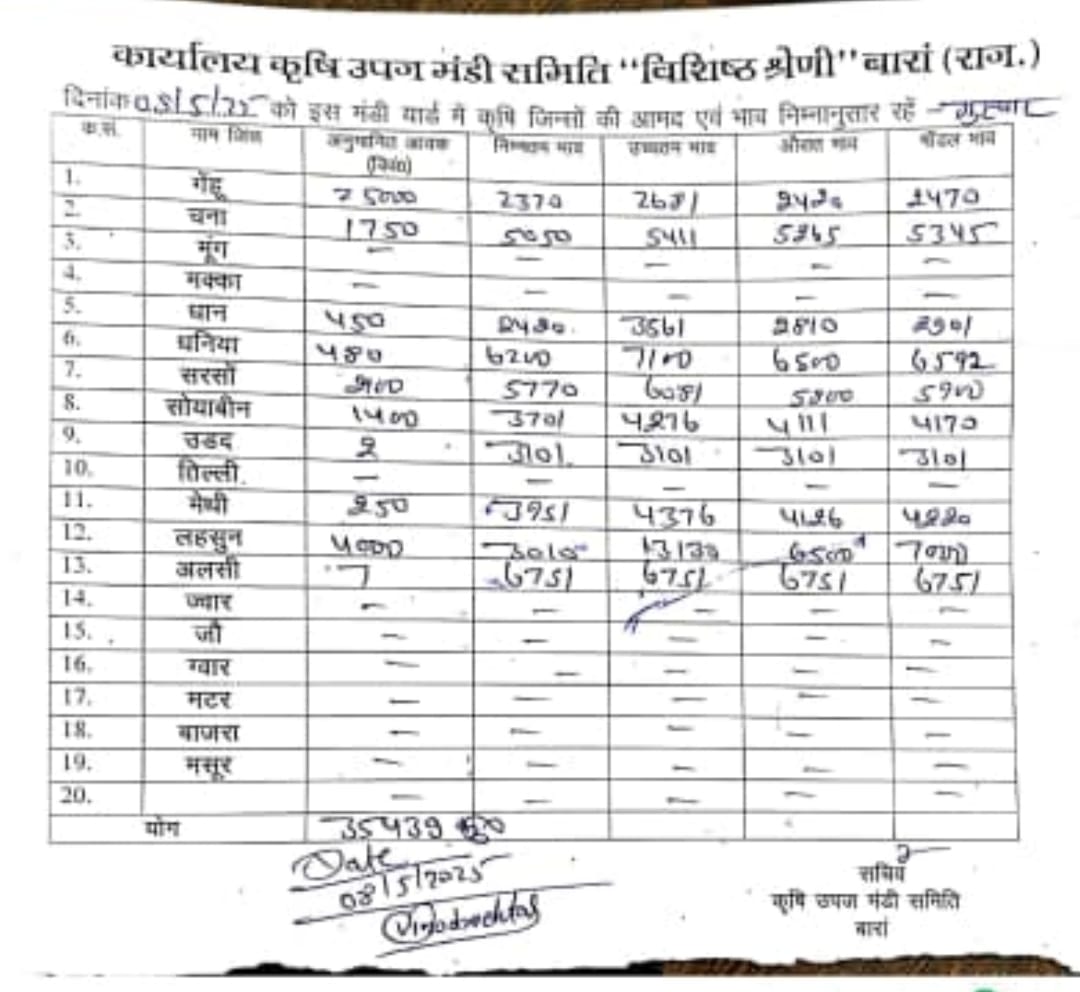 कार्यालय कृषि उपज मंडी समिति "विशिष्ठ श्रेणी" बारां (राज.)
दिनांक 08/5/25 को इस मंडी यार्ड में कृषि जिन्सों की आमद एवं भाव निम्नानुसार रहें - गुरुवार
क.सं. नाम जिंस अनुमानित आवक (क्विं0) निम्नतम भाव उच्चतम भाव औसत भाव मॉडल भाव
1. गेंहू 25000 2370 2681 2420 2470
2. चना 1750 5050 5411 5265 5345
3. मूंग — — — — —
4. मक्का — — — — —
5. धान 450 2420 3561 2810 2901
6. धनिया 480 6200 7100 6500 6592
7. सरसों 5770 6081 5800 5900
8. सोयाबीन 1400 3701 4276 4111 4170
9. उडद 2 3101 3101 3101 3101
10. तिल्ली — — — — —
11. मेथी 250 3951 4376 4126 4220
12. लहसुन 4000 6500 7000
13. अलसी 7 6751 6751 6751 6751
14. ज्वार — — — — —
15. जौ — — — — —
16. ग्वार — — — — —
17. मटर — — — — —
18. बाजरा — — — — —
19. मसूर — — — — —
20. — — — — —
योग 35439
Date
08/5/2025
सचिव
कृषि उपज मंडी समिति
बारां